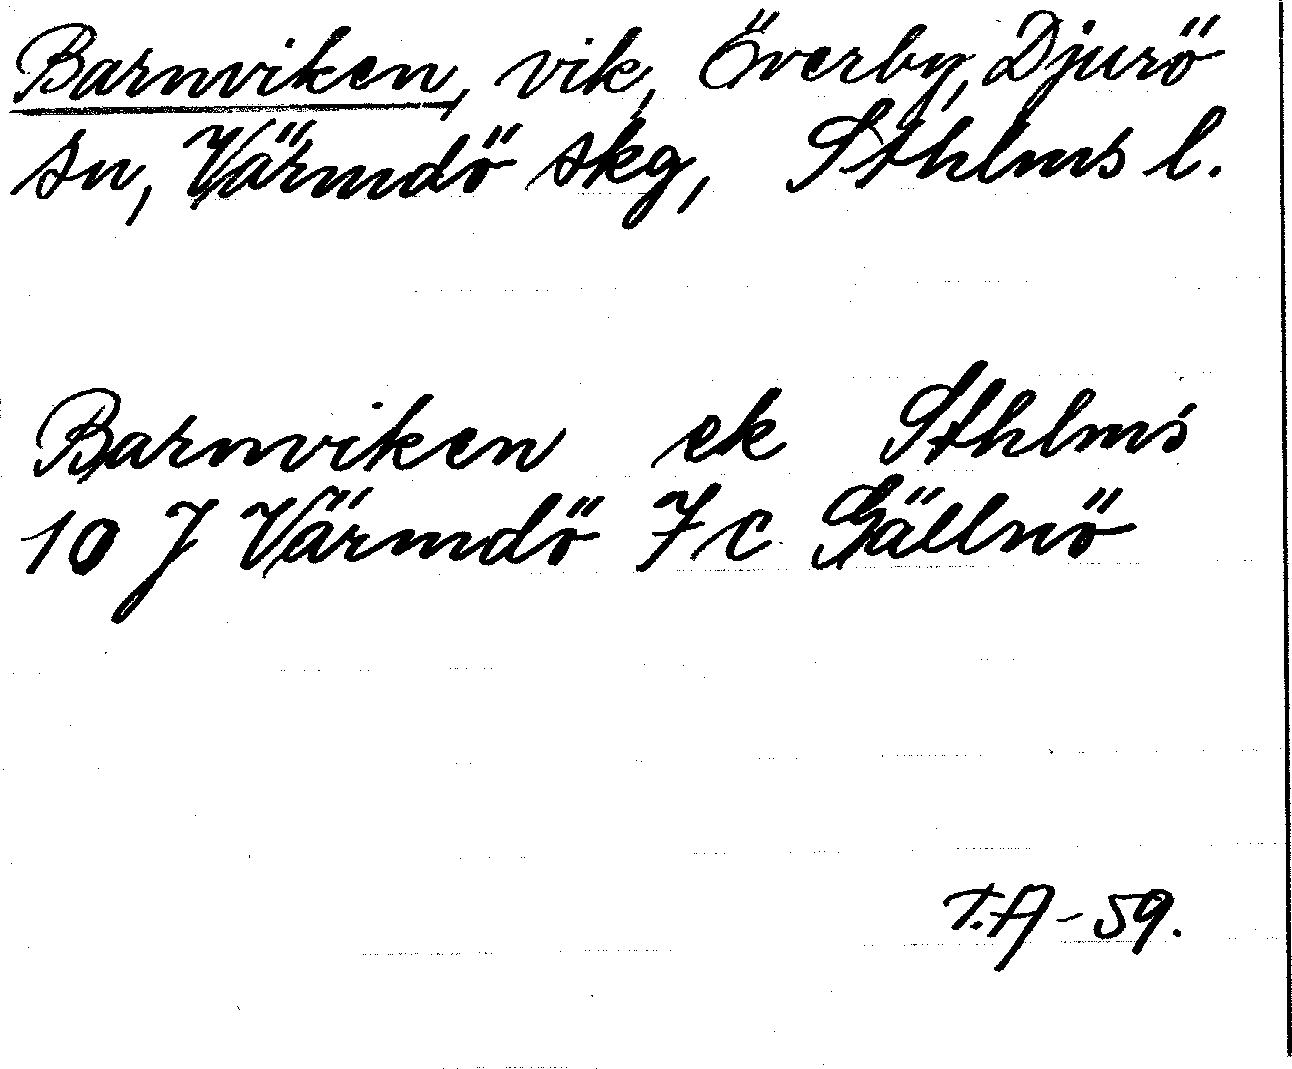 Barnviken, vik, Överby, Djurö
sn, Värmdö skg, Sthlms l.
Barnviken ek Sthlms
10 J Värmdö 7 c Gällnö
T.A - 59.